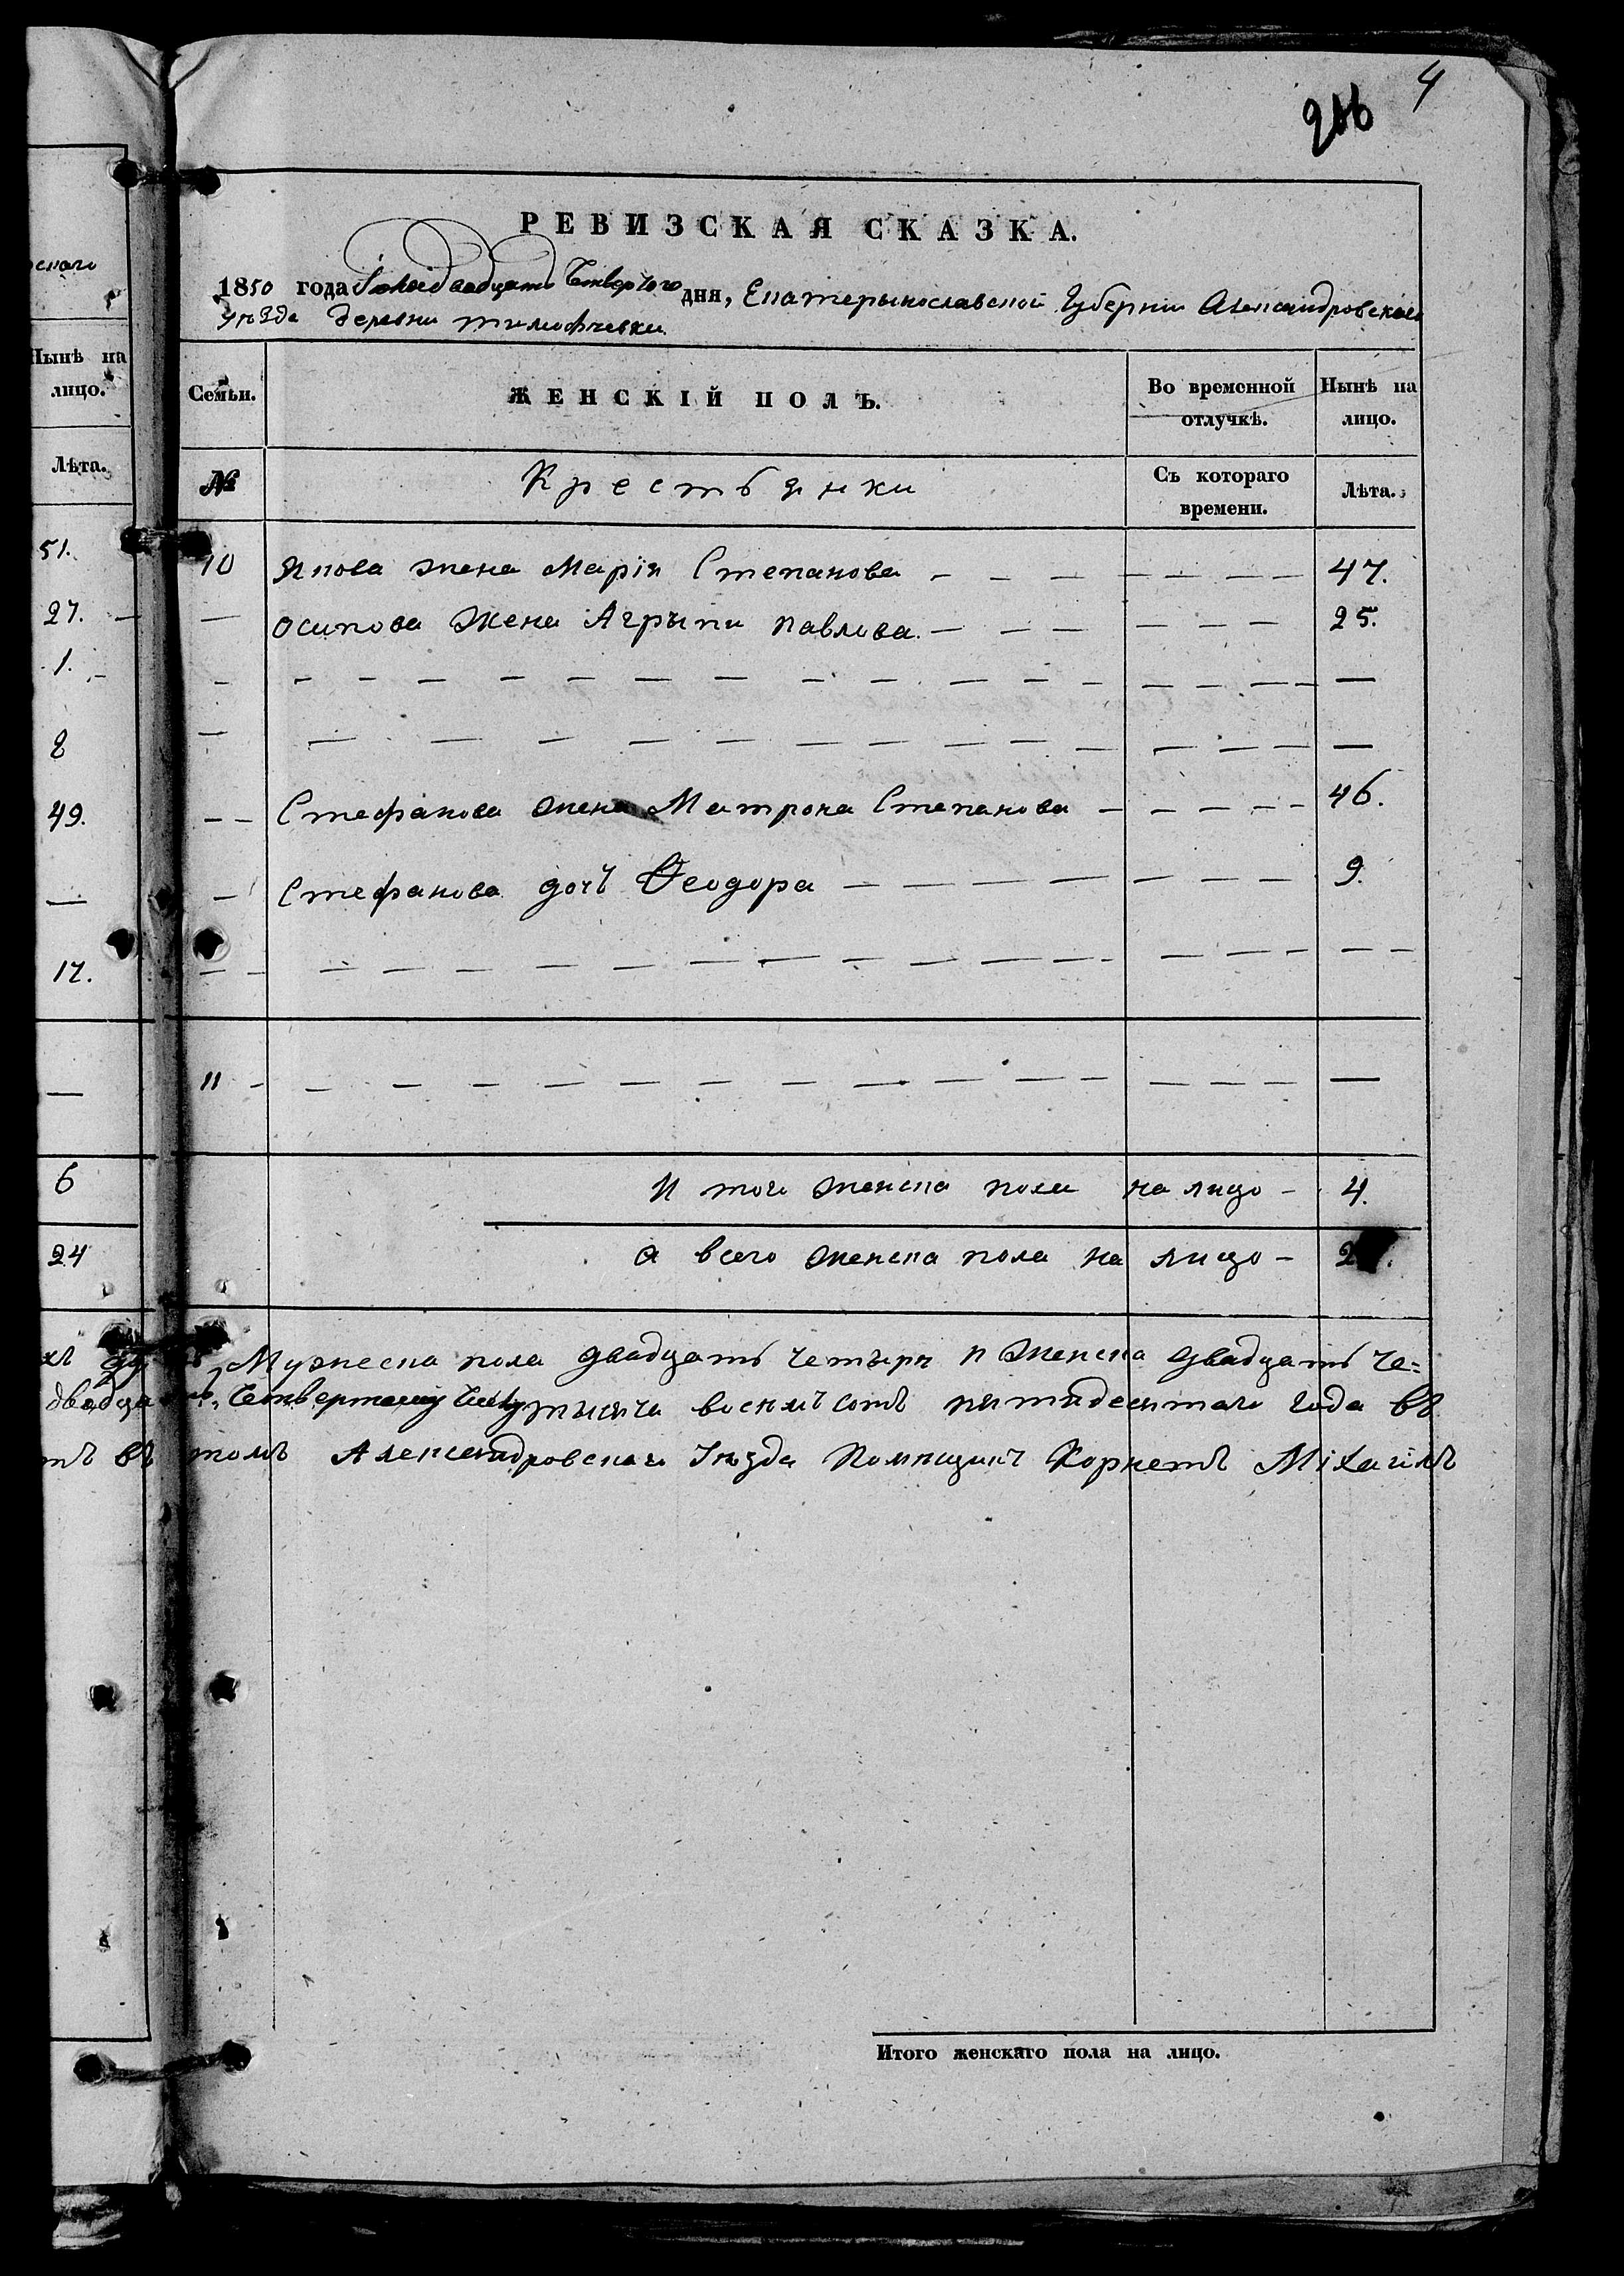 4
206
РЕВИЗСКАЯ СКАЗКА.
1850 года Іюля двадцать Четвертого дня, Екатерынославской Губерніи Александровскаго
Уѣзда деревни тимофѣевки
Семьи. ЖЕНСКІЙ ПОЛЪ. Во временной отлучкѣ. Нынѣ на лицо.
№ Крестьянки Съ котораго времени. Лѣта.
10 Якова жена Марія Степанова — — — — — — — 47.
— Осипова Жена Агрыпи павлова. — — — — — — 25.
— — — — — — — — — — — — — — — — —
— — — — — — — — — — — — — — — — —
— — Стефанова жена Матрона Степанова — — — — — 46.
— Стефанова дочь Феодора — — — — — — — — 9.
— — — — — — — — — — — — — — — — — —
11 — — — — — — — — — — — — — — — —
И того женска пола на лицо — 4.
А всего женска пола на лицо — 2
Мужеска пола двадцать четыри и женска двадцать че=
Четвертому тысяча восемъсотъ пятидесятаго года въ
томъ Александровскаго Уѣзда Помѣщикъ Корнетъ Міхаилъ
Итого женскаго пола на лицо.
скаго
Нынѣ на
лицо.
Лѣта.
51.
27. —
1. —
8
49.
—
17.
—
6
24
двадца
тъ въ